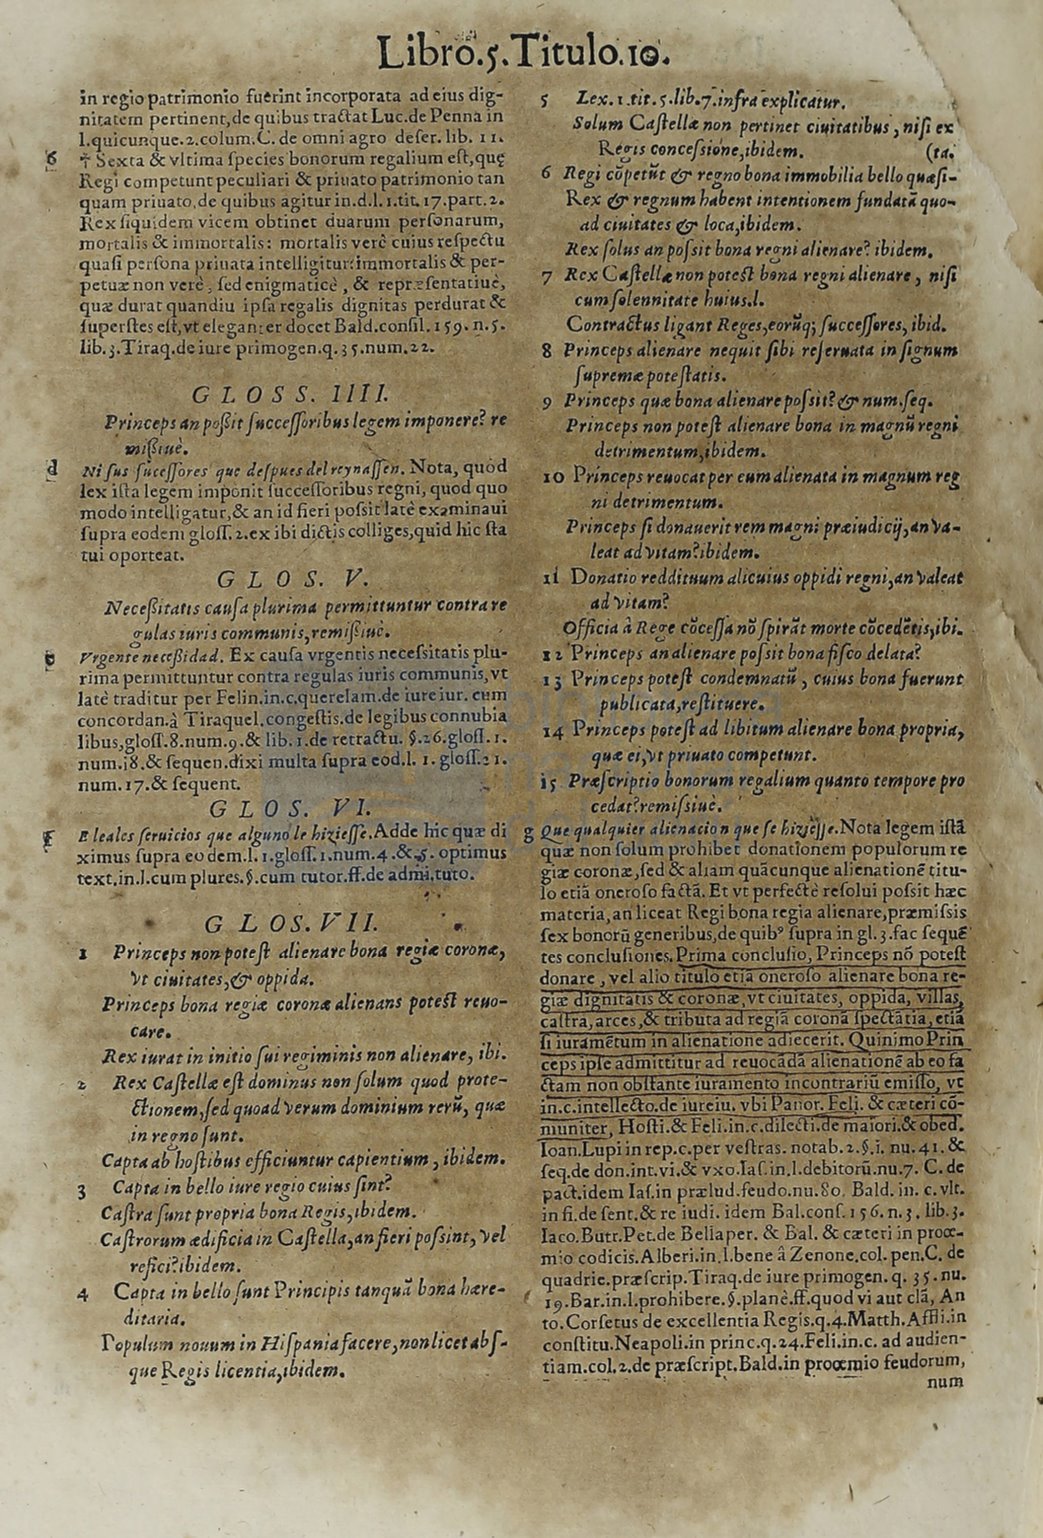 Libro.5.Titulo.10.
in regio patrimonio fuerint incorporata ad eius dig-
nitatem pertinent, de quibus tractat Luc.de Penna in
l.quicunque.2.colum.C. de omni agro deser. lib. 11.
6 † Sexta & vltima species bonorum regalium est, quę
Regi competunt peculiari & priuato patrimonio tan
quam priuato, de quibus agitur in.d.l.1.tit.17.part.2.
Rex siquidem vicem obtinet duarum personarum,
mortalis & immortalis: mortalis verè cuius respectu
quasi persona priuata intelligitur: immortalis & per-
petuæ non verè, sed enigmaticè, & repræsentatiuè,
quæ durat quandiu ipsa regalis dignitas perdurat &
superstes est, vt eleganter docet Bald.consil.159.n.5.
lib.3.Tiraq.de iure primogen.q.35.num.22.
GLOSS. IIII.
Princeps an possit successoribus legem imponere? re
missiuè.
d Ni sus sucessores que despues del reynassen. Nota, quòd
lex ista legem imponit successoribus regni, quod quo
modo intelligatur, & an id fieri possit latè examinaui
supra eodem gloss.2.ex ibi dictis colliges, quid hic sta
tui oporteat.
GLOS. V.
Necessitatis causa plurima permittuntur contra re
gulas iuris communis, remissiuè.
e Vrgente necessidad. Ex causa vrgentis necessitatis plu-
rima permittuntur contra regulas iuris communis, vt
latè traditur per Felin.in.c.querelam.de iureiur. cum
concordan.à Tiraquel.congestis.de legibus connubia
libus, gloss.8.num.9.& lib.1.de retractu. §.26.gloss.1.
num.18.& sequen.dixi multa supra eod.l. 1. gloss.21.
num.17.& sequent.
GLOS. VI.
f E leales seruicios que alguno le hiziesse. Adde hic quæ di
ximus supra eodem.l.1.gloss.1.num.4.&.5. optimus
text.in.l.cum plures.§.cum tutor.ff.de admi.tuto.
GLOS.VII.
1 Princeps non potest alienare bona regiæ coronæ,
vt ciuitates, & oppida.
Princeps bona regiæ coronæ alienans potest reuo-
care.
Rex iurat in initio sui regiminis non alienare, ibi.
2 Rex Castellæ est dominus non solum quod prote-
ctionem, sed quoad verum dominium rerũ, quæ
in regno sunt.
Capta ab hostibus efficiuntur capientium, ibidem.
3 Capta in bello iure regio cuius sint?
Castra sunt propria bona Regis, ibidem.
Castrorum ædificia in Castella, an fieri possint, vel
refici? ibidem.
4 Capta in bello sunt Principis tanquã bona hære-
ditaria.
Populum nouum in Hispania facere, non licet abs-
que Regis licentia, ibidem.
5 Lex.1.tit.5.lib.7.infra explicatur.
Solum Castellæ non pertinet ciuitatibus, nisi ex
Regis concessione, ibidem. (ta.
6 Regi cõpetũt & regno bona immobilia bello quæsi-
Rex & regnum habent intentionem fundatã quo-
ad ciuitates & loca, ibidem.
Rex solus an possit bona regni alienare? ibidem.
7 Rex Castellæ non potest bona regni alienare, nisi
cum solennitate huius.l.
Contractus ligant Reges, eorũq; successores, ibid.
8 Princeps alienare nequit sibi reseruata in signum
supremæ potestatis.
9 Princeps quæ bona alienare possit? & num.seq.
Princeps non potest alienare bona in magnũ regni
detrimentum, ibidem.
10 Princeps reuocat per eum alienata in magnum reg
ni detrimentum.
Princeps si donauerit rem magni præiudicij, an va-
leat ad vitam? ibidem.
11 Donatio reddituum alicuius oppidi regni, an valeat
ad vitam?
Officia à Rege cõcessa nõ spirãt morte cõcedẽtis, ibi.
12 Princeps an alienare possit bona fisco delata?
13 Princeps potest condemnatũ, cuius bona fuerunt
publicata, restituere.
14 Princeps potest ad libitum alienare bona propria,
quæ ei, vt priuato competunt.
15 Præscriptio bonorum regalium quanto tempore pro
cedat? remissiuè.
g Que qualquier alienacion que se hiziesse. Nota legem istã
quæ non solum prohibet donationem populorum re
giæ coronæ, sed & aliam quãcunque alienationẽ titu-
lo etiã oneroso factã. Et vt perfectè resolui possit hæc
materia, an liceat Regi bona regia alienare, præmissis
sex bonorũ generibus, de quibꝰ supra in gl.3.fac sequẽ
tes conclusiones. Prima conclusio, Princeps nõ potest
donare, vel alio titulo etiã oneroso alienare bona re-
giæ dignitatis & coronæ, vt ciuitates, oppida, villas,
castra, arces, & tributa ad regiã coronã spectãtia, etiã
si iuramẽtum in alienatione adiecerit. Quinimo Prin
ceps ipse admittitur ad reuocãdã alienationẽ ab eo fa
ctam non obstante iuramento incontrariũ emisso, vt
in.c.intellecto.de iureiu. vbi Panor. Feli. & cæteri cõ-
muniter, Hosti.& Feli.in.c.dilecti.de maiori.& obed.
Ioan.Lupi in rep.c.per vestras. notab.2.§.i. nu.41.&
seq.de don.int.vi.& vxo.Ias.in.l.debitorũ.nu.7. C. de
pact.idem Ias.in prælud.feudo.nu.80. Bald. in. c. vlt.
in fi.de sent.& re iudi. idem Bal.cons.156.n.3. lib.3.
Iaco.Butr.Pet.de Bellaper. & Bal. & cæteri in proœ-
mio codicis.Alberi.in.l.bene à Zenone.col. pen.C. de
quadrie.præscrip.Tiraq.de iure primogen.q.35.nu.
19.Bar.in.l.prohibere.§.planè.ff.quod vi aut clã, An
to.Corsetus de excellentia Regis.q.4.Matth.Affli.in
constitu.Neapoli.in princ.q.24.Feli.in.c. ad audien-
tiam.col.2.de præscript.Bald.in proœmio feudorum,
num